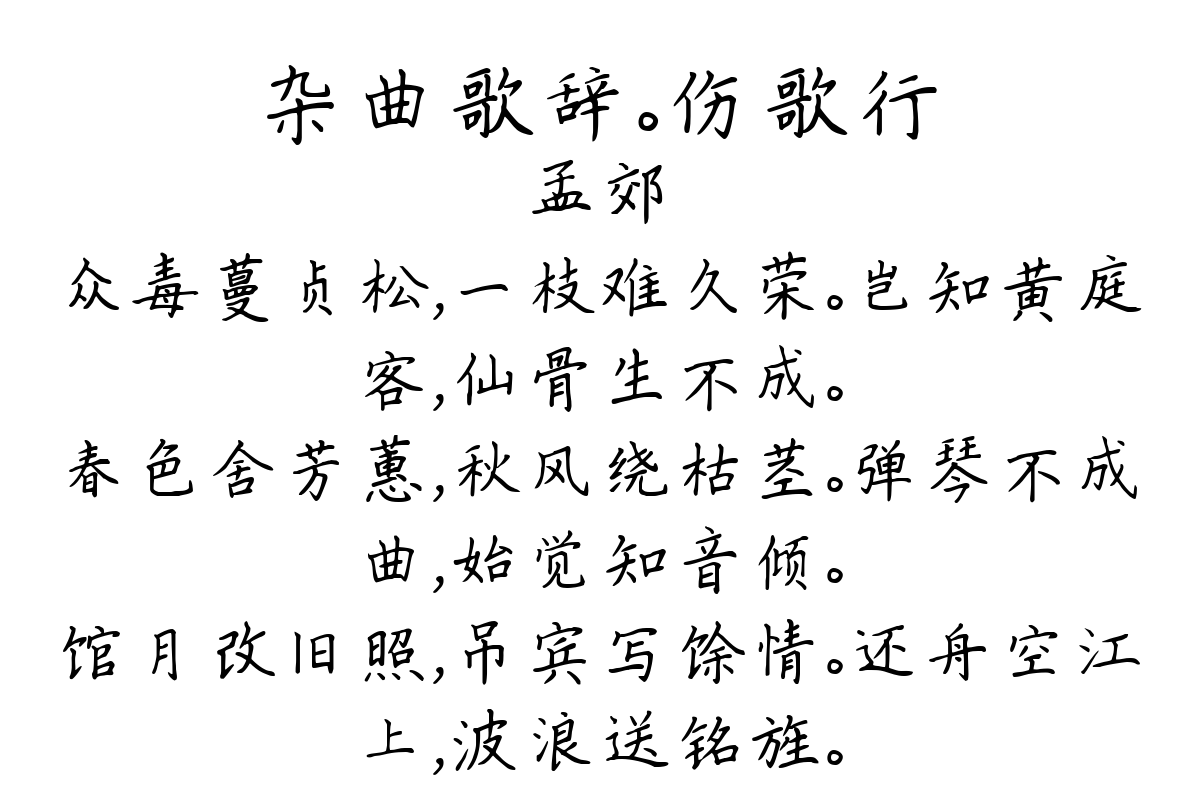 杂曲歌辞。伤歌行
孟郊
众毒蔓贞松,一枝难久荣。岂知黄庭
客,仙骨生不成。
春色舍芳蕙,秋风绕枯茎。弹琴不成
曲,始觉知音倾。
馆月改旧照,吊宾写馀情。还舟空江
上,波浪送铭旌。